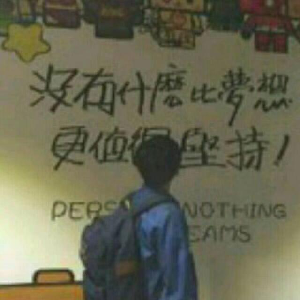 沒有什麼比夢想
更值得堅持!
PERS NOTHING
EAMS